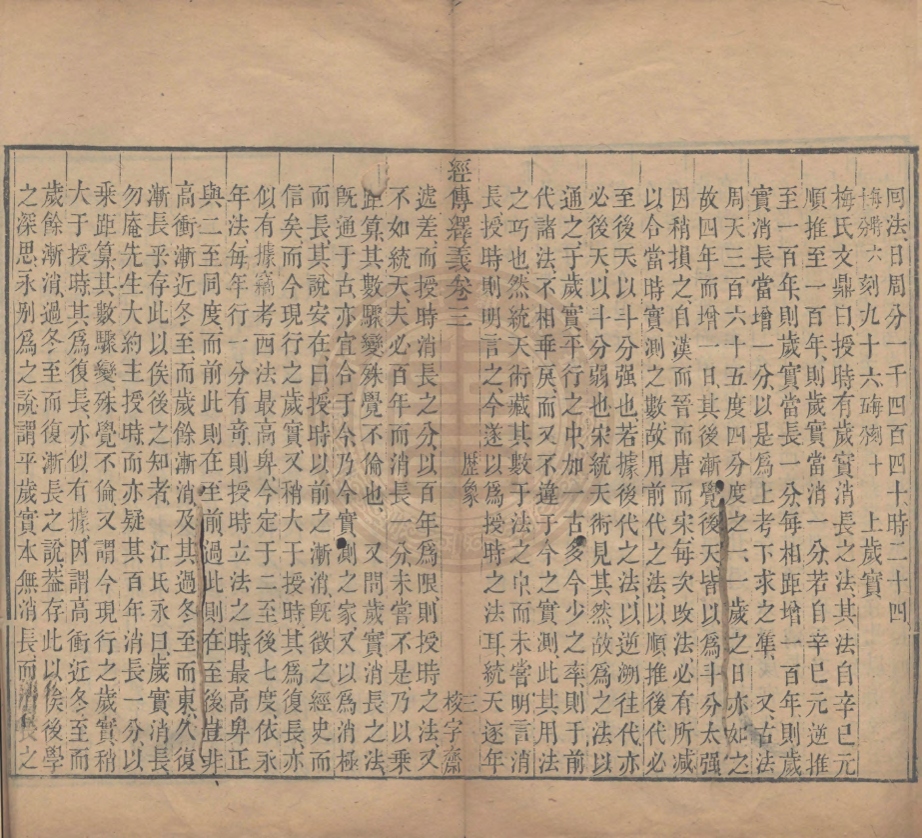 回法、日周分一千四百四十時二十四
刻九十六 十 上歲實
梅氏文鼎曰、授時有歲實消長之法、其法自辛巳元
順推至一百年、則歲實當消一分、若自辛巳元逆推
至一百年、則歲實當長一分、每相距增一百年、則歲
實消長當增一分、以是爲上考下求之準、 又古法
周天三百六十五度四分度之一、一歲之日亦如之
故四年而增一日、其後漸覺後天、皆以爲斗分太强
因稍損之、自漢而晉而唐而宋、每次改法、必有所減
以合當時實測之數、故用前代之法、以順推後代、必
至後天、以斗分强也、若據後代之法、以逆溯往代、亦
必後天、以斗分弱也、宋統天術見其然、故爲之法、以
通之、于歲實平行之中、加一古多今少之率、則于前
代諸法、不相乖戾、而又不違于今之實測、此其用法
之巧也、然統天術藏其數于法之中、而未嘗明言消
長、授時則明言之、今遂以爲授時之法耳、統天逐年
經傳繹義卷三 歷象 三 校字齋
遞差、而授時消長之分、以百年爲限、則授時之法、又
不如統天、夫必百年而消長一分、未嘗不是、乃以乘
距算、其數驟變、殊覺不倫也、 又問歲實消長之法、
旣通于古、亦宜合于今、乃今實測之家、又以爲消極
而長、其說安在、曰、授時以前之漸消、旣徵之經史而
信矣、而今現行之歲實、又稍大于授時、其爲復長、亦
似有據、竊考西法最高卑、今定于二至後七度、依永
年法、每年行一分有奇、則授時立法之時、最高卑正
與二至同度、而前此則在至前、過此則在至後、豈非
高衝漸近冬至、而歲餘漸消、及其過冬至而東、久復
漸長乎、存此以俟後之知者、 江氏永曰、歲實消長、
勿庵先生大約主授時、而亦疑其百年消長一分、以
乘距算、其數驟變、殊覺不倫、又謂今現行之歲實、稍
大于授時、其爲復長、亦似有據、因謂高衝近冬至而
歲餘漸消、過冬至而復漸長之說、蓋存此以俟後學
之深思、永別爲之說、謂平歲實本無消長、而消長之